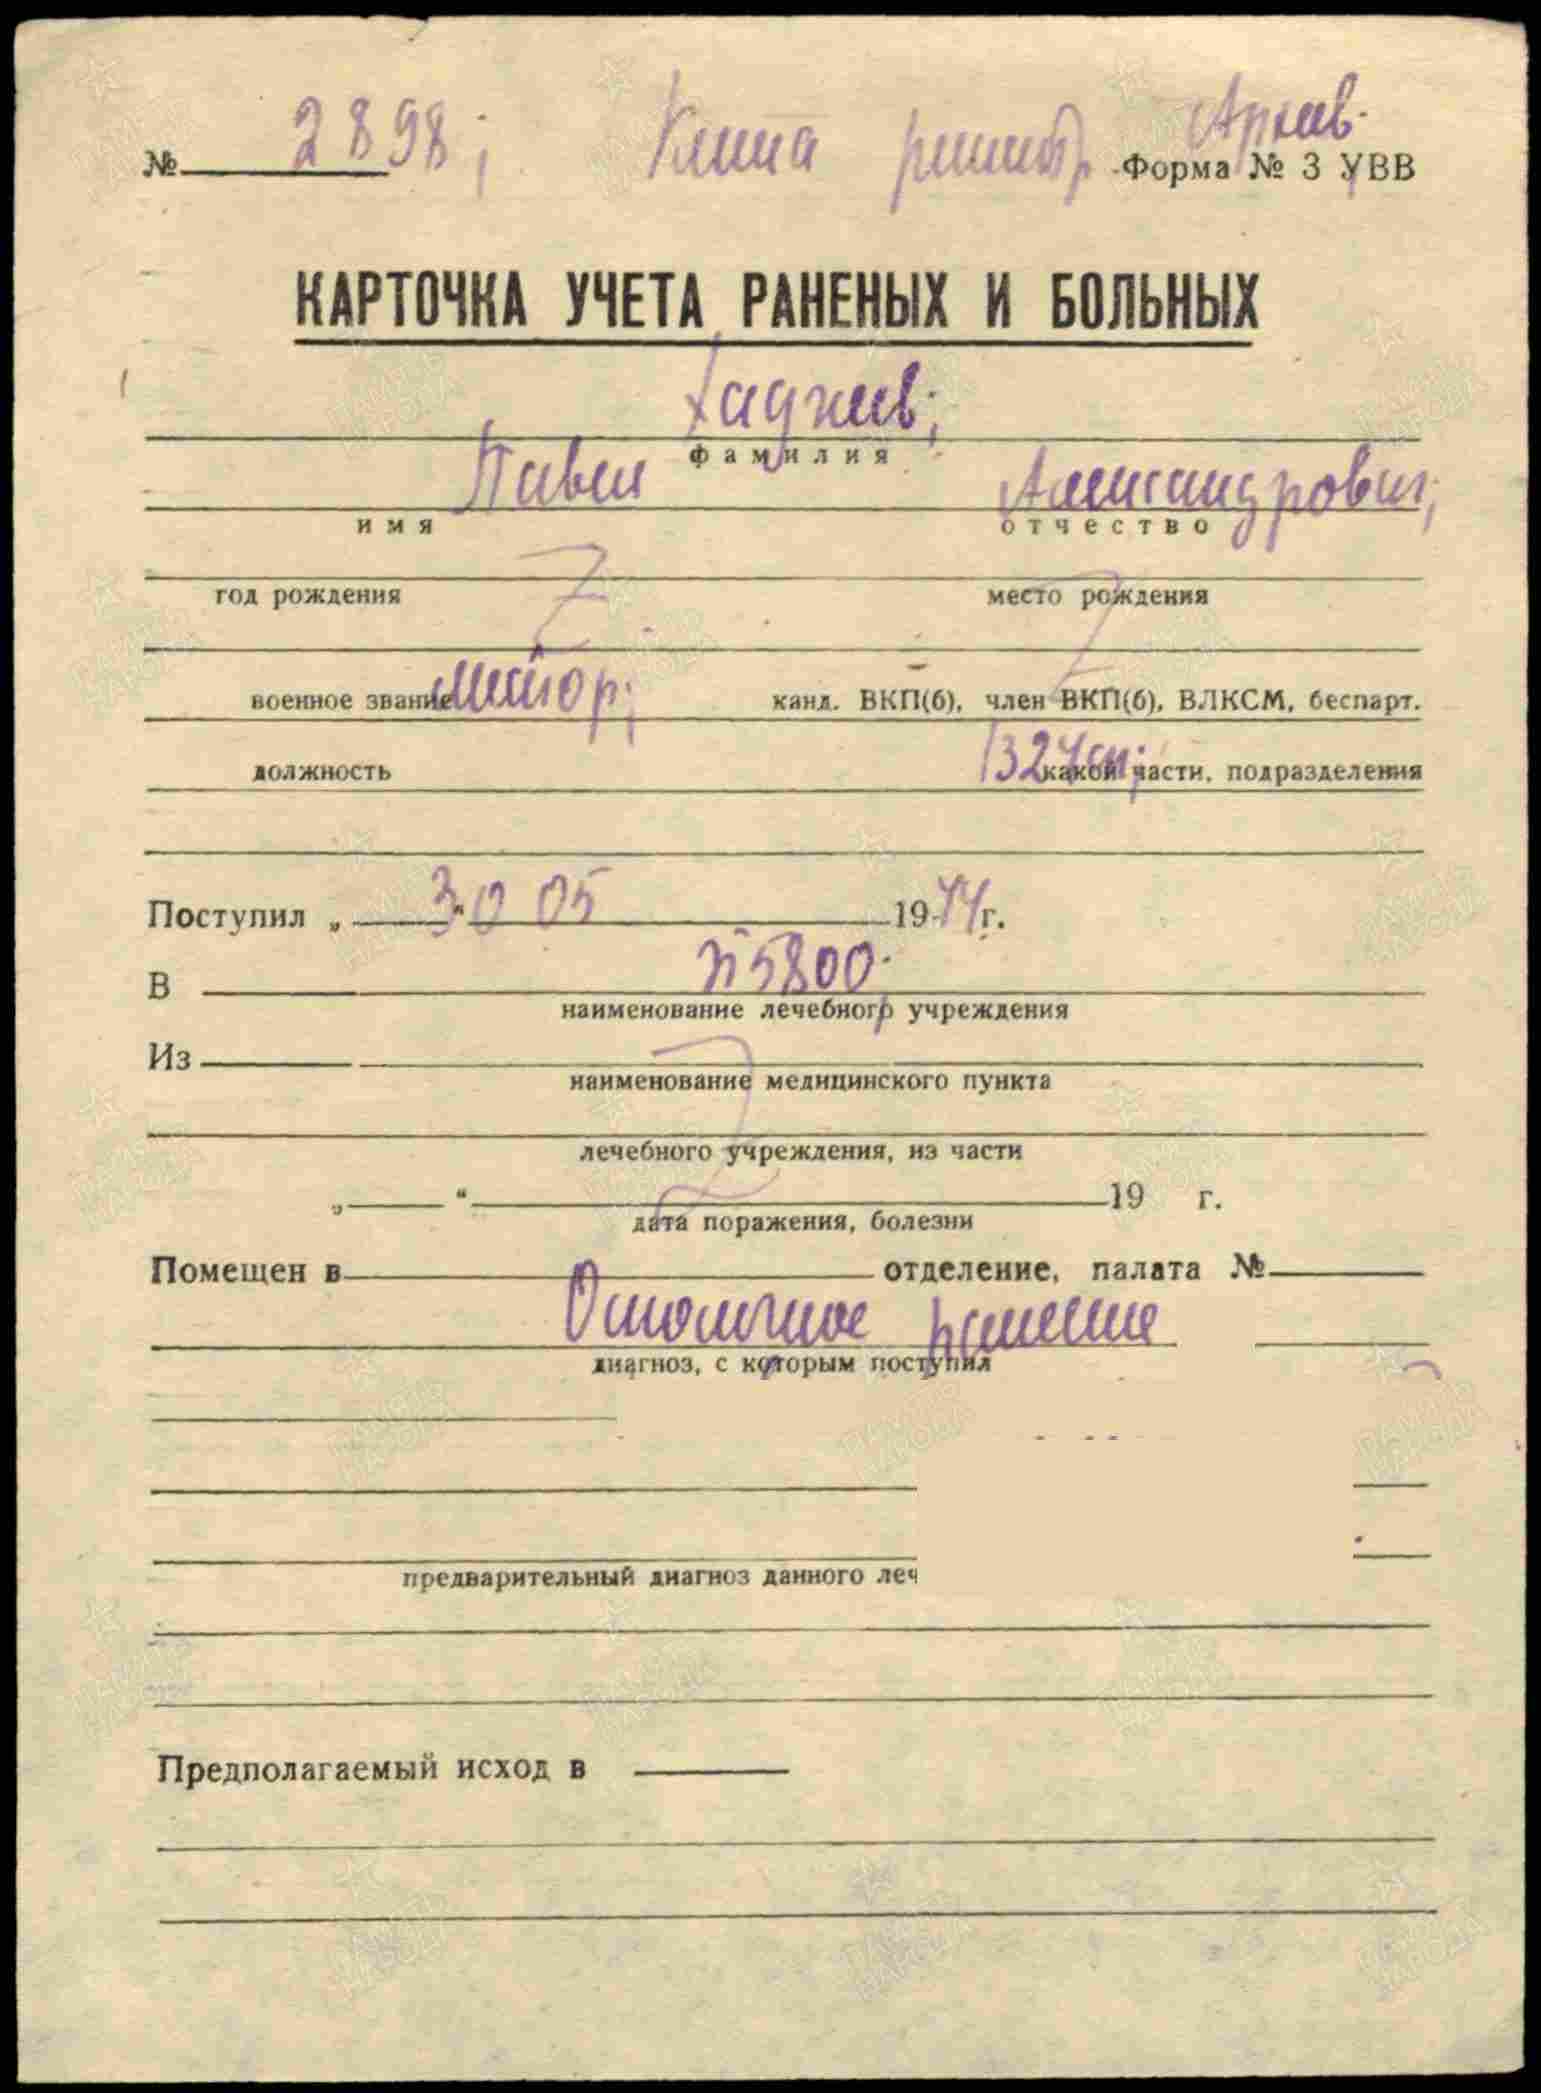 № 2898; Книга регистр Архив.
Форма № 3 УВВ
КАРТОЧКА УЧЕТА РАНЕНЫХ И БОЛЬНЫХ
Хаджиев;
фамилия
Павел Александрович;
имя отчество
Z Z
год рождения место рождения
военное звание майор; канд. ВКП(б), член ВКП(б), ВЛКСМ, беспарт.
должность 1324 сп; какой части, подразделения
Поступил „30“ 05 1944 г.
В пп 5800;
наименование лечебного учреждения
Из Z
наименование медицинского пункта
лечебного учреждения, из части
„ “ 19 г.
дата поражения, болезни
Помещен в отделение, палата №
Осколочное ранение
диагноз, с которым поступил
предварительный диагноз данного леч
Предполагаемый исход в
ПАМЯТЬ НАРОДА